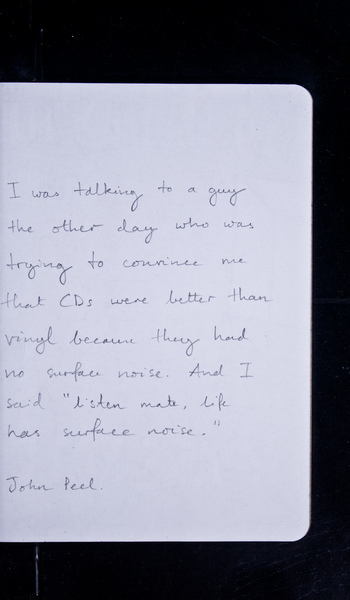 I was talking to a guy
the other day who was
trying to convince me
that CDs were better than
vinyl because they had
no surface noise. And I
said "listen mate, life
has surface noise."
John Peel.